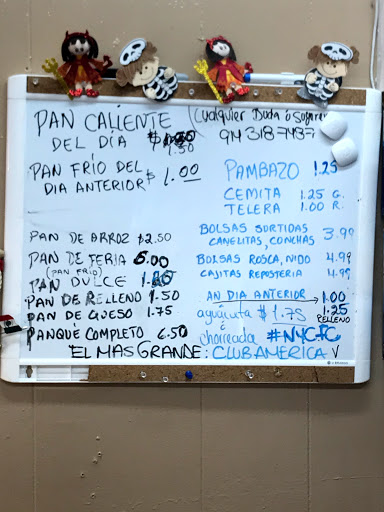 PAN CALIENTE
DEL DÍA $ 1.50
PAN FRÍO DEL
DIA ANTERIOR $ 1.00
PAN DE ARROZ $2.50
PAN DE FERIA 5.00
(PAN FRÍO)
PAN DULCE
PAN DE RELLENO 1.50
PAN DE QUESO 1.75
PANQUÉ COMPLETO 6.50
(Cualquier Duda o
914 318 7487
PAMBAZO 1.25
CEMITA 1.25 G.
TELERA 1.00 R.
BOLSAS SURTIDAS
CANELITAS, CONCHAS 3.99
BOLSAS ROSCA, NIDO 4.99
CAJITAS REPOSTERIA 4.99
AN DIA ANTERIOR → 1.00
1.25
RELLENO
$1.75
é
chorreada #NYCFC
EL MAS GRANDE: CLUB AMERICA V